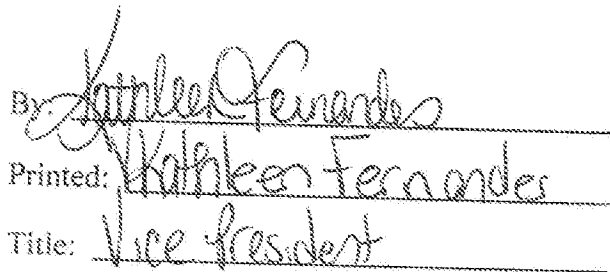 By: Kathleen Fernandes
Printed: Kathleen Fernandes
Title: Vice President